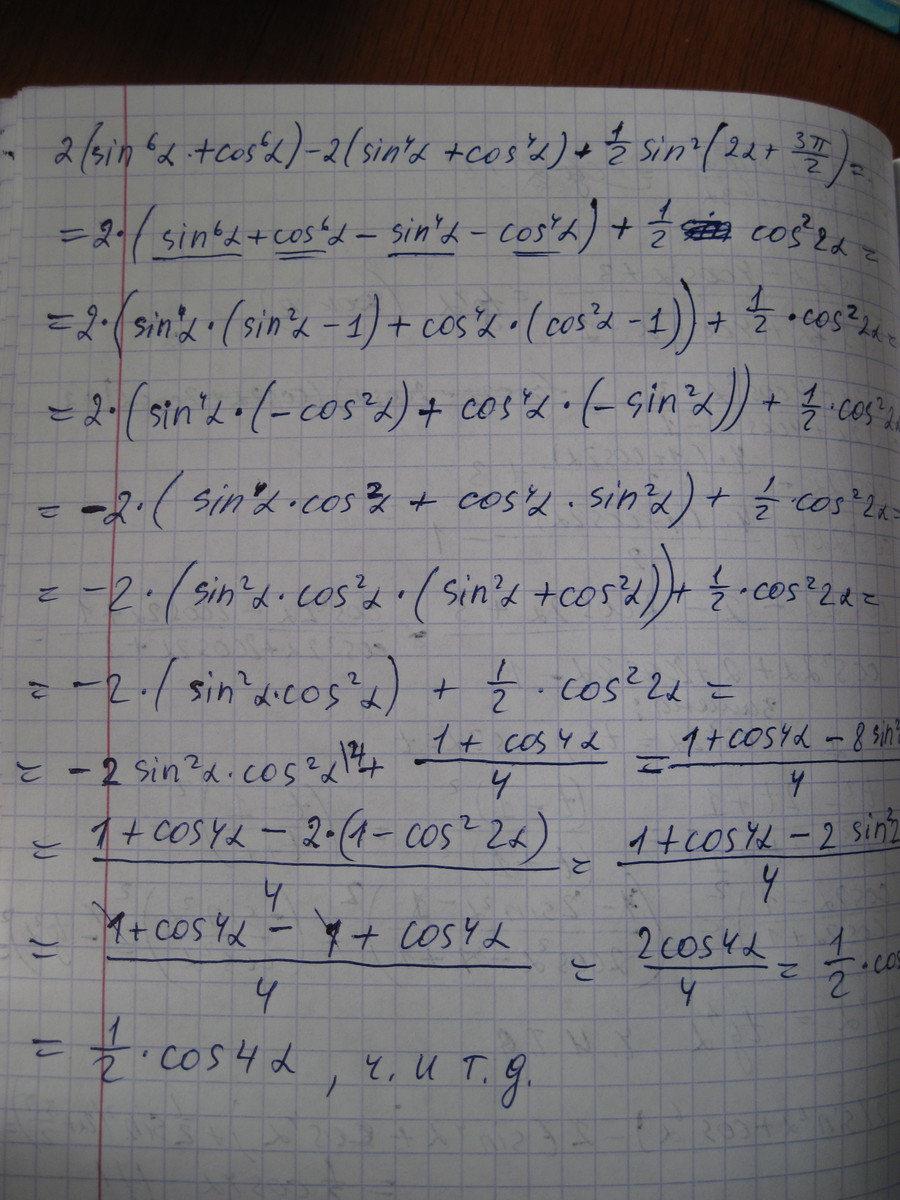 2(sin⁶α + cos⁶α) - 2(sin⁴α + cos⁴α) + 1/2 sin²(2α + 3π/2) =
= 2·(sin⁶α + cos⁶α - sin⁴α - cos⁴α) + 1/2 cos²2α =
= 2·(sin⁴α·(sin²α - 1) + cos⁴α·(cos²α - 1)) + 1/2·cos²2α =
= 2·(sin⁴α·(-cos²α) + cos⁴α·(-sin²α)) + 1/2·cos²2α
= -2·(sin⁴α·cos²α + cos⁴α·sin²α) + 1/2·cos²2α =
= -2·(sin²α·cos²α·(sin²α + cos²α)) + 1/2·cos²2α =
= -2·(sin²α·cos²α) + 1/2·cos²2α =
= -2 sin²α·cos²α |4 + (1 + cos4α)/4 = (1 + cos4α - 8 sin²
= (1 + cos4α - 2·(1 - cos²2α))/4 = (1 + cos4α - 2 sin²2
= (1 + cos4α - 1 + cos4α)/4 = 2cos4α/4 = 1/2·cos
= 1/2·cos4α, ч. и т.д.